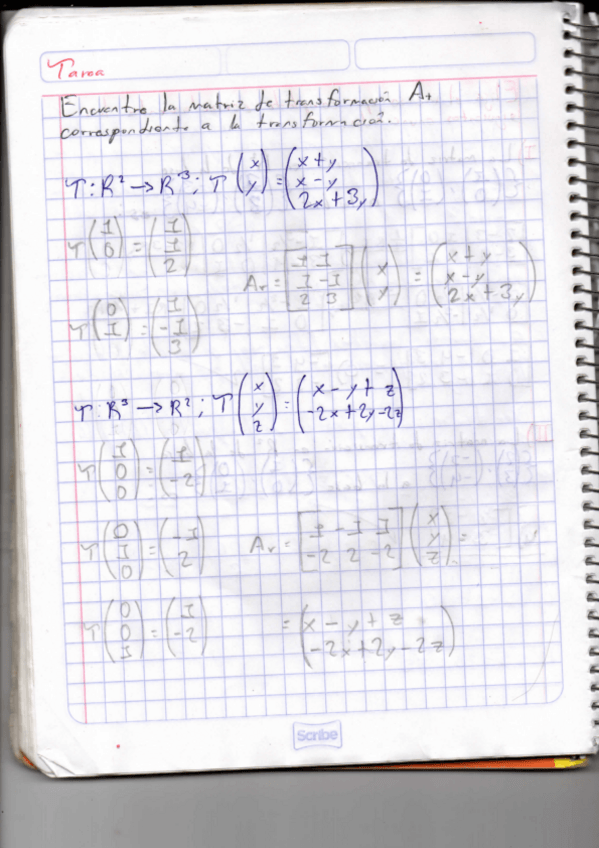 Tarea
Encuentre la matriz de transformación A_T
correspondiente a la transformación.
T: R² → R³; T (x y) = (x+y x-y 2x+3y)
T (1 0) = (1 1 2)
A_T = [1 1; 1 -1; 2 3] (x y) = (x+y x-y 2x+3y)
T (0 1) = (1 -1 3)
T: R³ → R²; T (x y z) = (x-y+z -2x+2y-2z)
T (1 0 0) = (1 -2)
T (0 1 0) = (-1 2)
A_T = [1 -1 1; -2 2 -2] (x y z) =
T (0 0 1) = (1 -2)
= (x-y+z -2x+2y-2z)
Scribe